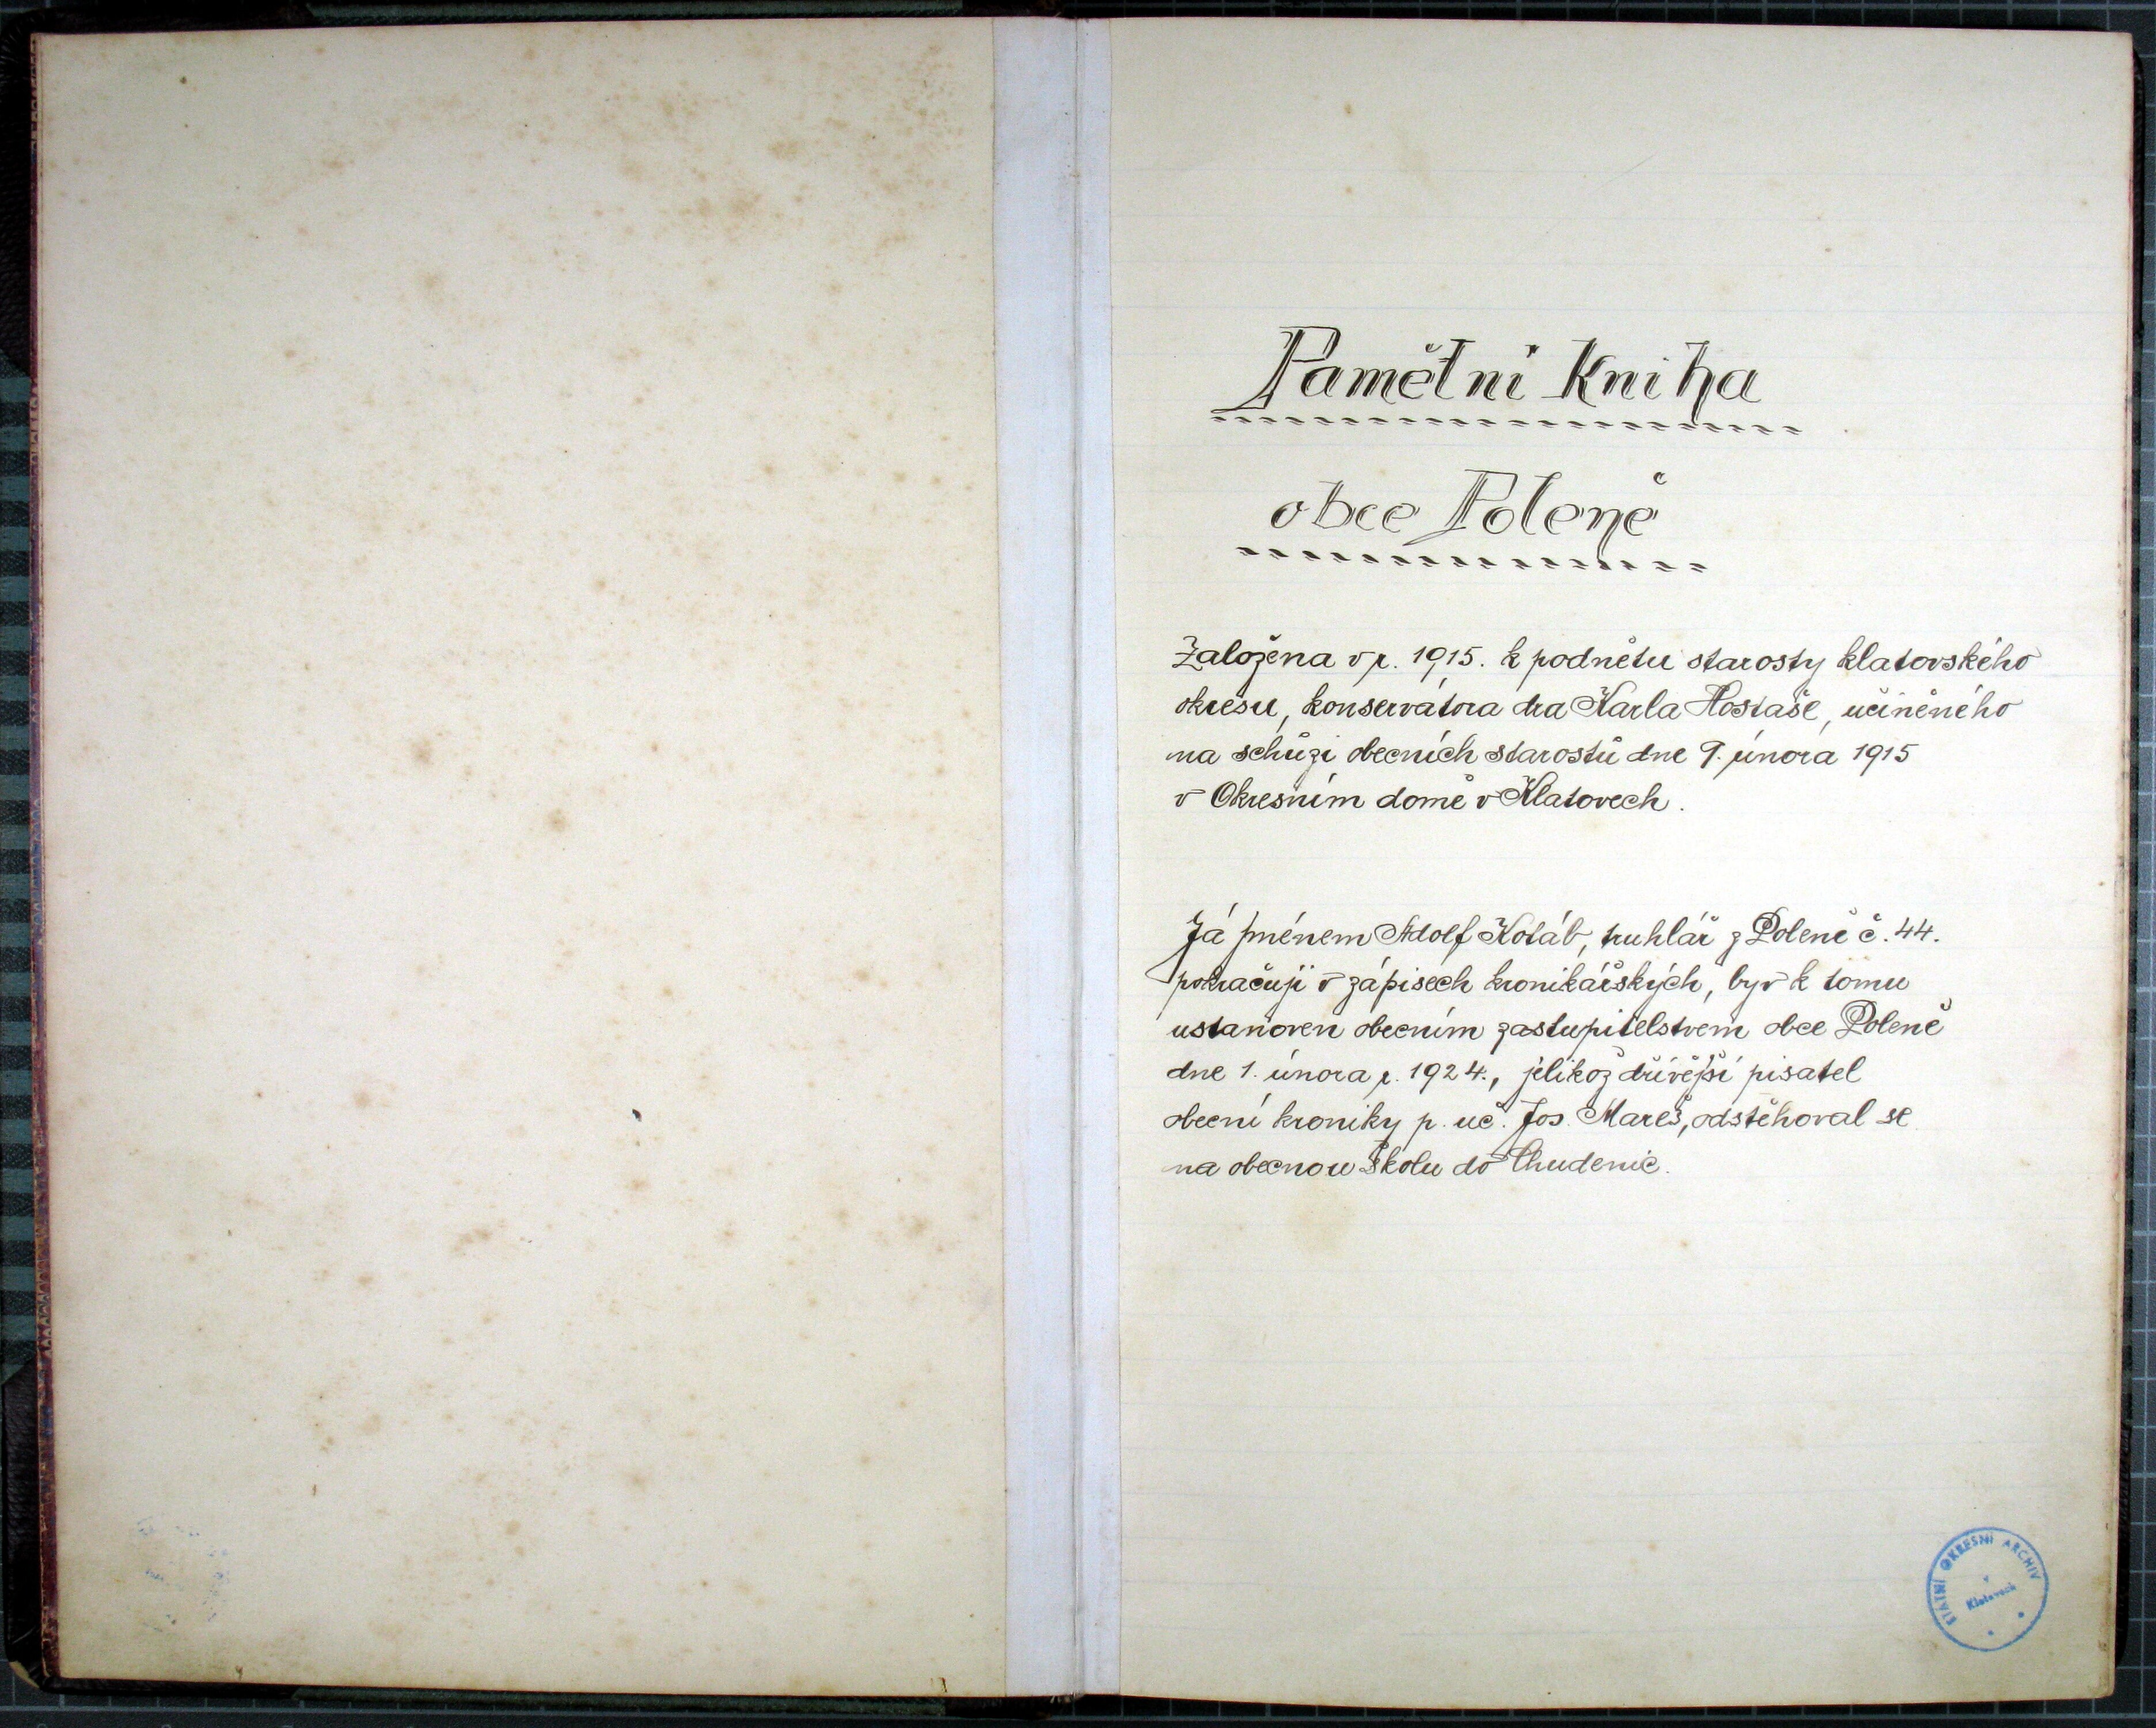 Pamětní kniha
obce Poleně
Založena v r. 1915. k podnětu starosty klatovského
okresu, konservátora dra Karla Hostaše, učiněného
na schůzi obecních starostů dne 9. února 1915
v Okresním domě v Klatovech.
Já jménem Adolf Koláb, truhlář z Poleně č. 44.
pokračuji v zápisech kronikářských, byv k tomu
ustanoven obecním zastupitelstvem obce Poleně
dne 1. února r. 1924., jelikož dřívější pisatel
obecní kroniky p. uč. Jos. Mareš, odstěhoval se
na obecnou školu do Chudenic.
STÁTNÍ OKRESNÍ ARCHIV
v
Klatovech